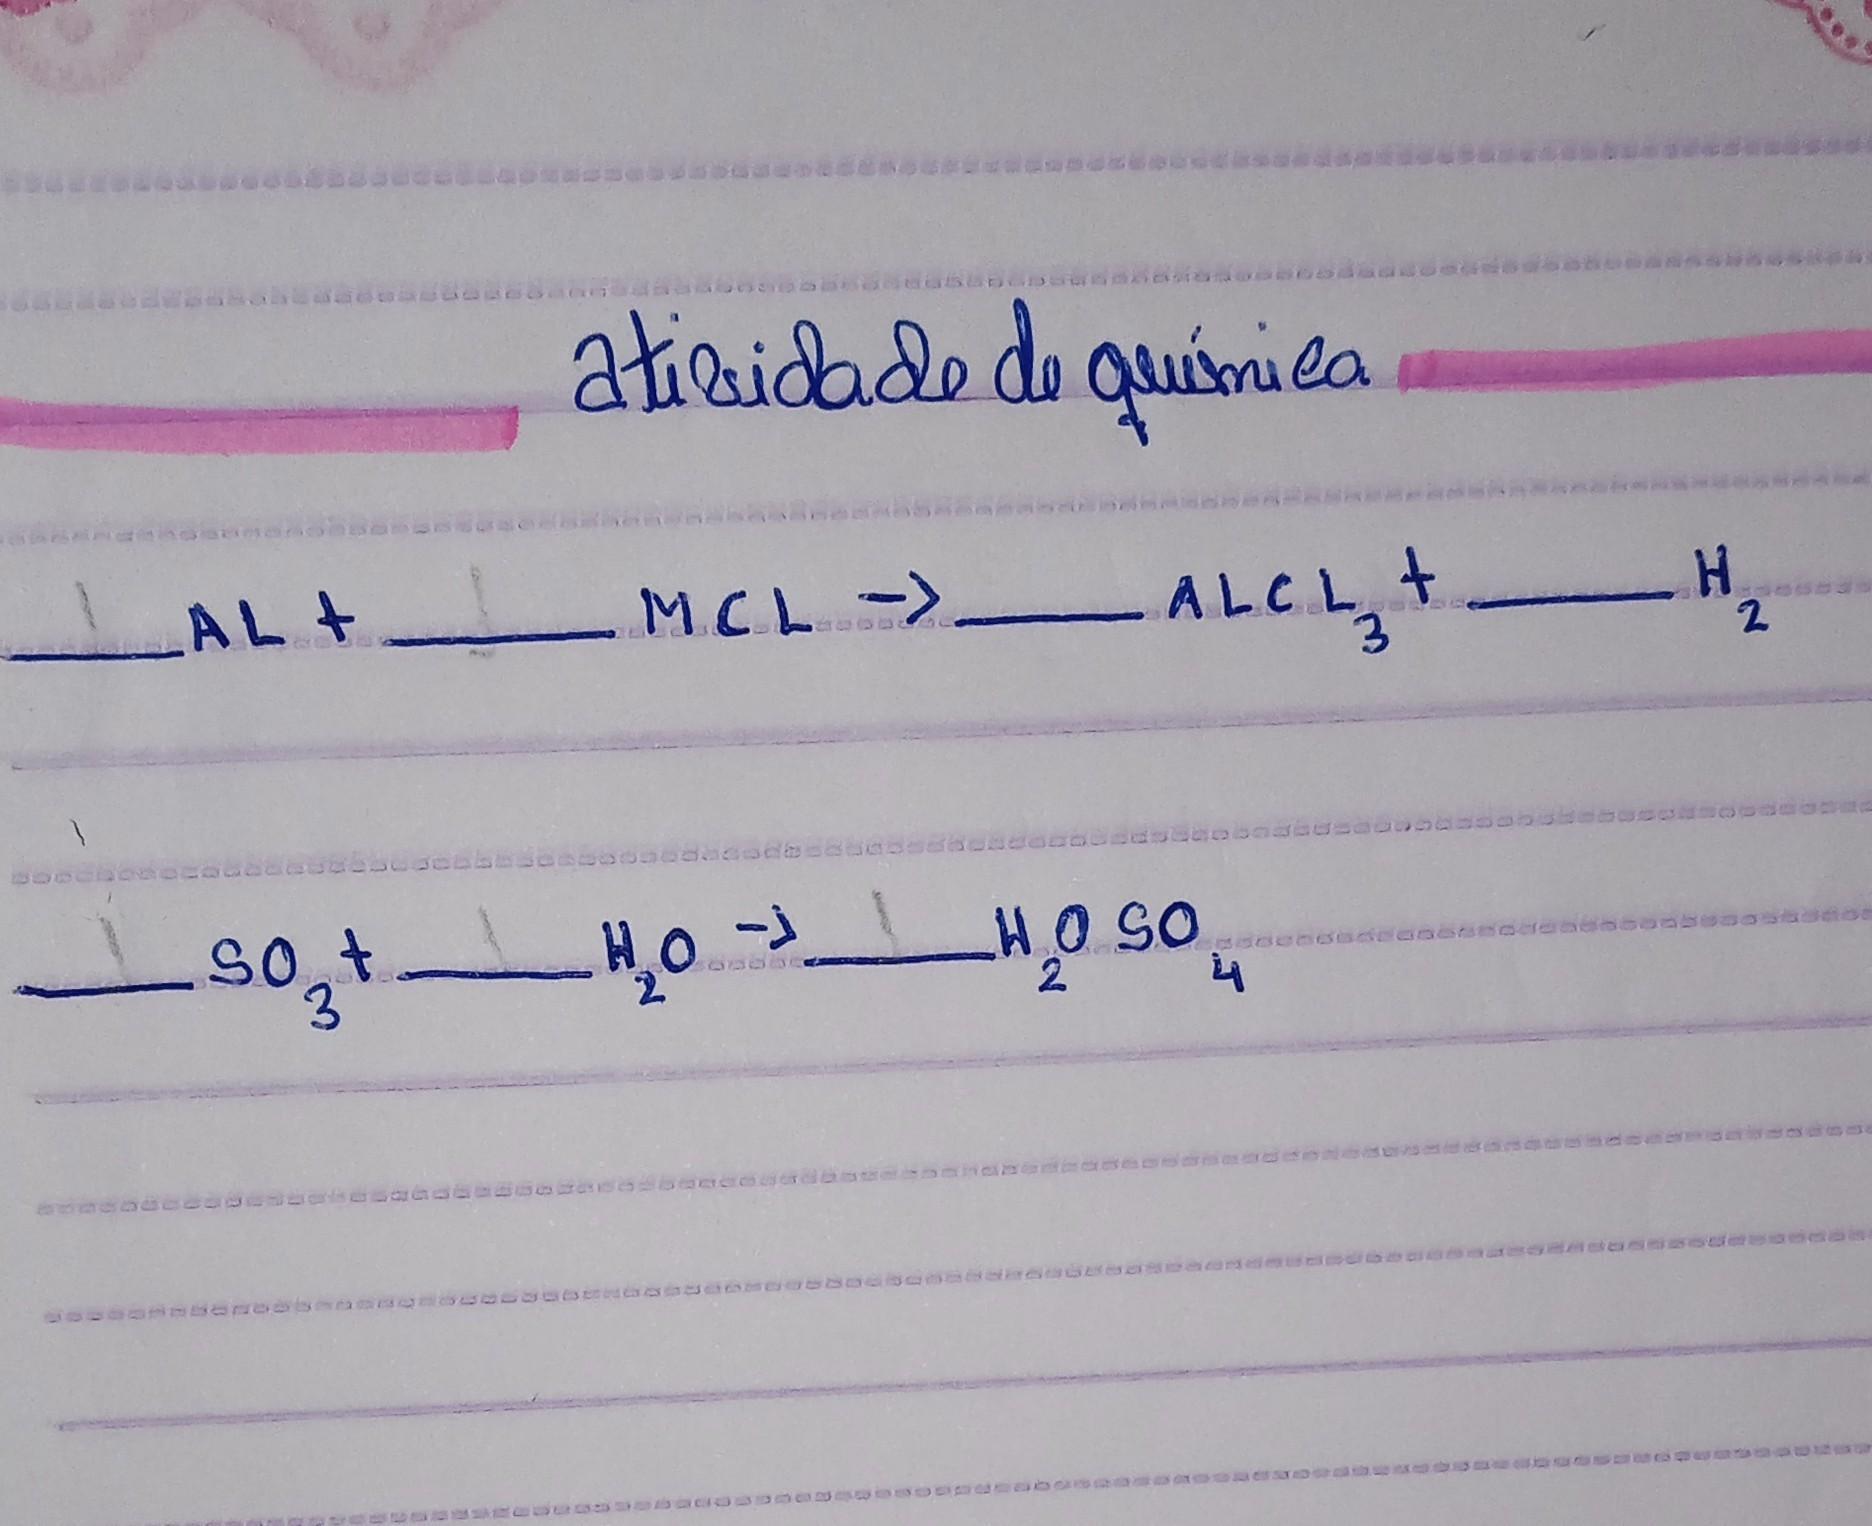 atividade de química
1 AL + 1 MCL -> ____ ALCL₃ + ____ H₂
1 SO₃ + 1 H₂O -> 1 H₂O SO₄